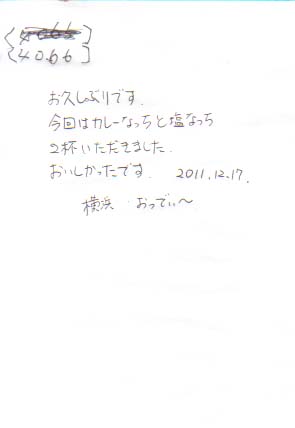 [4066]
お久しぶりです.
今回はカレーなっちと塩なっち
2杯いただきました.
おいしかったです. 2011.12.17.
横浜 おっでぃ〜